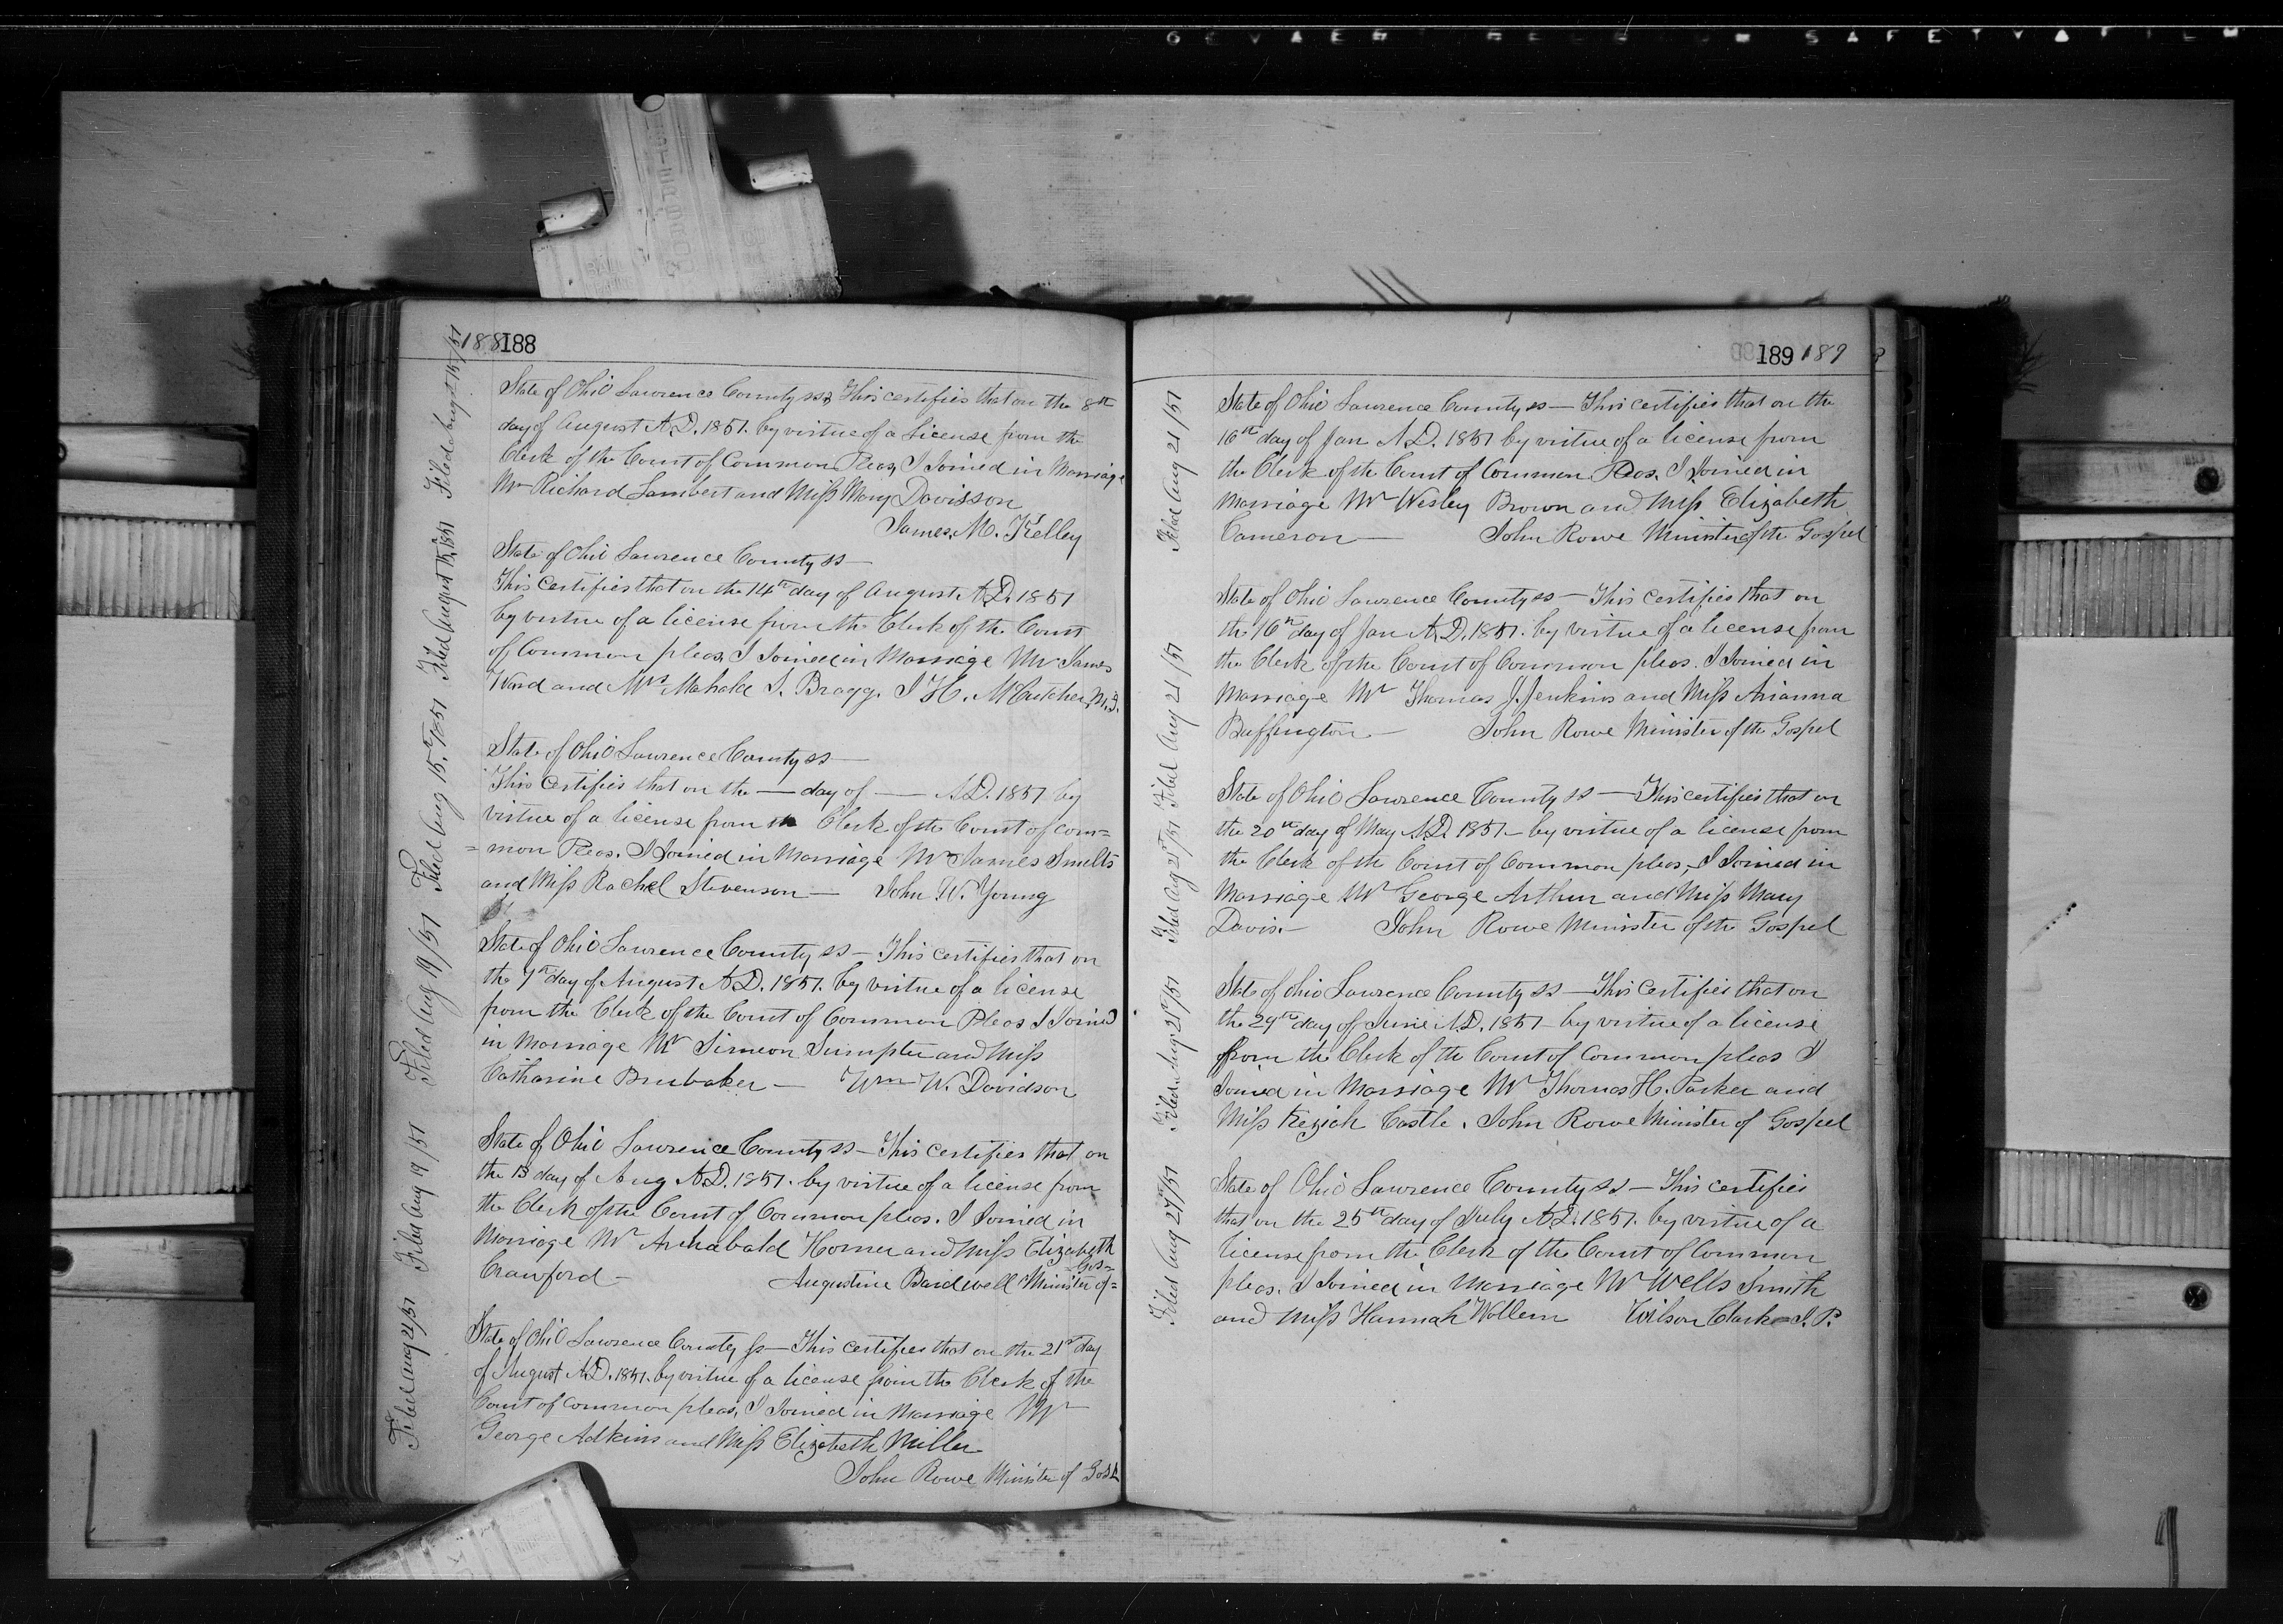 GEVAERT BELGIUM SAFETY FILM
188 188
Filed Aug 15/51
State of Ohio Lawrence County ss, This certifies that on the 8th
day of August A.D. 1851. by virtue of a License from the
Clerk of the Court of Common Pleas, I Joined in Marriage
Mr Richard Lambert and Miss Mary Davisson
James. M. Kelley
Filed August 15, 1851
State of Ohio Lawrence County ss —
This Certifies that on the 14th day of August A.D. 1851
by virtue of a license from the Clerk of the Court
of Common pleas, I Joined in Marriage Mr James
Ward and Mrs Mahala S. Bragg. I H. McCutchen, M.G.
Filed Aug 15. 1851
State of Ohio Lawrence County ss —
This Certifies that on the — day of — A.D. 1851 by
virtue of a license from the Clerk of the Court of Com=
=mon Pleas. I Joined in Marriage Mr James Smelts
and Miss Rachel Stevenson — John W. Young
Filed Aug 19/51
State of Ohio Lawrence County ss — This certifies that on
the 7th day of August A.D. 1851. by virtue of a license
from the Clerk of the Court of Common Pleas I Joined
in Marriage Mr Simeon Sumpter and Miss
Catharine Brubaker — Wm W. Davidson
Filed Aug 19/51
State of Ohio Lawrence County ss — This certifies that on
the 13 day of Aug A.D. 1851. by virtue of a license from
the Clerk of the Court of Common pleas. I Joined in
Marriage Mr Archabald Horner and Miss Elizabeth
Crawford — Augustine Bardwell Minister of = Gos=
Filed Aug 21/51
State of Ohio Lawrence County ss — This certifies that on the 21st day
of August A.D. 1851. by virtue of a license from the Clerk of the
Court of Common pleas, I Joined in Marriage Mr
George Adkins and Miss Elizabeth Miller
John Rowe Minister of Gosl
189 189
Filed Aug 21/51
State of Ohio Lawrence County ss — This certifies that on the
16th day of Jan A.D. 1851 by virtue of a license from
the Clerk of the Court of Common Pleas. I Joined in
Marriage Mr Wesley Brown and Miss Elizabeth
Cameron — John Rowe Minister of the Gospel
Filed Aug 21/51
State of Ohio Lawrence County ss — This Certifies that on
the 16th day of Jan A.D. 1851. by virtue of a license from
the Clerk of the Court of Common pleas. I Joined in
Marriage Mr Thomas J. Jenkins and Miss Arianna
Buffington — John Rowe Minister of the Gospel
Filed Aug 21st/51
State of Ohio Lawrence County ss — This certifies that on
the 20th day of May A.D. 1851 — by virtue of a license from
the Clerk of the Court of Common pleas, I Joined in
Marriage Mr George Arthur and Miss Mary
Davis. — John Rowe Minister of the Gospel
Filed. Aug. 21st/51
State of Ohio Lawrence County ss — This Certifies that on
the 29th day of June A.D. 1851 — by virtue of a license
from the Clerk of the Court of Common pleas I
Joined in Marriage Mr Thomas H. Parker and
Miss Keziah Castle. John Rowe Minister of Gospel
Filed Aug 27th/51
State of Ohio Lawrence County ss — This certifies
that on the 25th day of July A.D. 1851. by virtue of a
license from the Clerk of the Court of Common
pleas. I Joined in Marriage Mr Wells Smith
and Miss Hannah Wollem Wilson Clark J. P.